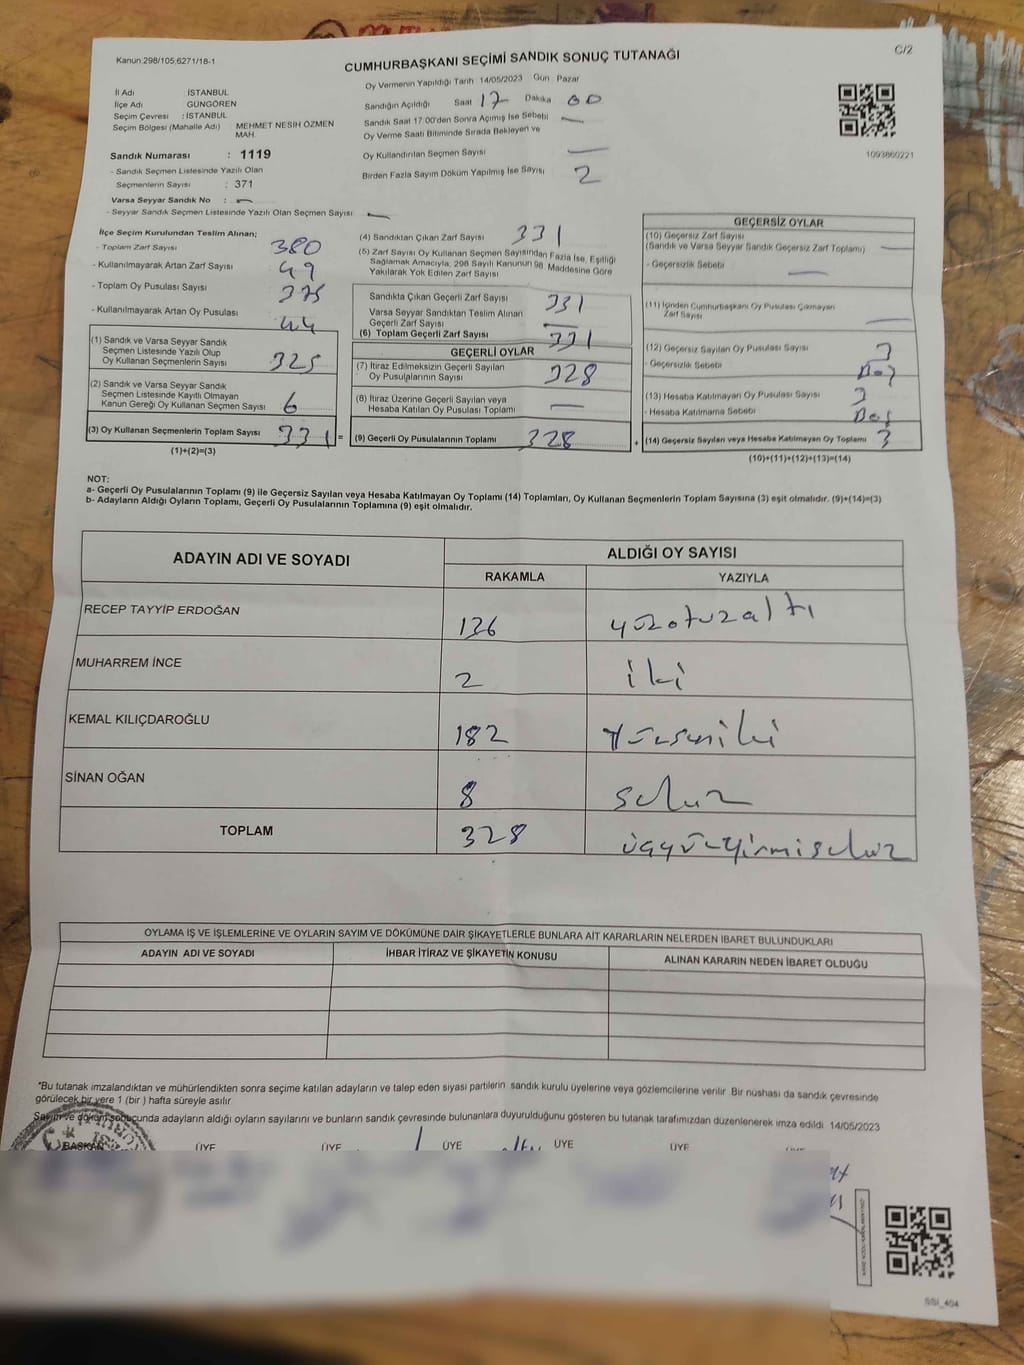 C/2
Kanun:298/105,6271/18-1
CUMHURBAŞKANI SEÇİMİ SANDIK SONUÇ TUTANAĞI
Oy Vermenin Yapıldığı Tarih 14/05/2023 Gün : Pazar
İl Adı : İSTANBUL
İlçe Adı : GÜNGÖREN
Seçim Çevresi : İSTANBUL
Seçim Bölgesi (Mahalle Adı) : MEHMET NESİH ÖZMEN
MAH.
Sandık Numarası : 1119
- Sandık Seçmen Listesinde Yazılı Olan
Seçmenlerin Sayısı : 371
Varsa Seyyar Sandık No : —
- Seyyar Sandık Seçmen Listesinde Yazılı Olan Seçmen Sayısı —
Sandığın Açıldığı Saat 17 Dakika 00
Sandık Saat 17:00'den Sonra Açımış İse Sebebi —
Oy Verme Saati Bitiminde Sırada Bekleyen ve
Oy Kullandırılan Seçmen Sayısı —
Birden Fazla Sayım Döküm Yapılmış İse Sayısı 2
1093860221
İlçe Seçim Kurulundan Teslim Alınan;
- Toplam Zarf Sayısı 380
- Kullanılmayarak Artan Zarf Sayısı 49
- Toplam Oy Pusulası Sayısı 375
- Kullanılmayarak Artan Oy Pusulası 44
(1) Sandık ve Varsa Seyyar Sandık
Seçmen Listesinde Yazılı Olup
Oy Kullanan Seçmenlerin Sayısı 325
(2) Sandık ve Varsa Seyyar Sandık
Seçmen Listesinde Kayıtlı Olmayan
Kanun Gereği Oy Kullanan Seçmen Sayısı 6
(3) Oy Kullanan Seçmenlerin Toplam Sayısı 331 =
(1)+(2)=(3)
(4) Sandıktan Çıkan Zarf Sayısı 331
(5) Zarf Sayısı Oy Kullanan Seçmen Sayısından Fazla İse, Eşitliği
Sağlamak Amacıyla, 298 Sayılı Kanunun 98 Maddesine Göre
Yakılarak Yok Edilen Zarf Sayısı
Sandıkta Çıkan Geçerli Zarf Sayısı 331
Varsa Seyyar Sandıktan Teslim Alınan
Geçerli Zarf Sayısı —
(6) Toplam Geçerli Zarf Sayısı 331
GEÇERLİ OYLAR
(7) İtiraz Edilmeksizin Geçerli Sayılan
Oy Pusulalarının Sayısı 328
(8) İtiraz Üzerine Geçerli Sayılan veya
Hesaba Katılan Oy Pusulası Toplamı —
(9) Geçerli Oy Pusulalarının Toplamı 328 +
GEÇERSİZ OYLAR
(10) Geçersiz Zarf Sayısı
(Sandık ve Varsa Seyyar Sandık Geçersiz Zarf Toplamı) —
- Geçersizlik Sebebi —
(11) İçinden Cumhurbaşkanı Oy Pusulası Çıkmayan
Zarf Sayısı —
(12) Geçersiz Sayılan Oy Pusulası Sayısı 3
- Geçersizlik Sebebi Boş
(13) Hesaba Katılmayan Oy Pusulası Sayısı 3
- Hesaba Katılmama Sebebi Boş
(14) Geçersiz Sayılan veya Hesaba Katılmayan Oy Toplamı 3
(10)+(11)+(12)+(13)=(14)
NOT:
a- Geçerli Oy Pusulalarının Toplamı (9) ile Geçersiz Sayılan veya Hesaba Katılmayan Oy Toplamı (14) Toplamları, Oy Kullanan Seçmenlerin Toplam Sayısına (3) eşit olmalıdır. (9)+(14)=(3)
b- Adayların Aldığı Oyların Toplamı, Geçerli Oy Pusulalarının Toplamına (9) eşit olmalıdır.
ADAYIN ADI VE SOYADI ALDIĞI OY SAYISI
RAKAMLA YAZIYLA
RECEP TAYYİP ERDOĞAN 136 yüzotuzaltı
MUHARREM İNCE 2 iki
KEMAL KILIÇDAROĞLU 182
SİNAN OĞAN 8 sekiz
TOPLAM 328 üçyüzyirmisekiz
OYLAMA İŞ VE İŞLEMLERİNE VE OYLARIN SAYIM VE DÖKÜMÜNE DAİR ŞİKAYETLERLE BUNLARA AİT KARARLARIN NELERDEN İBARET BULUNDUKLARI
ADAYIN ADI VE SOYADI İHBAR İTİRAZ VE ŞİKAYETİN KONUSU ALINAN KARARIN NEDEN İBARET OLDUĞU
*Bu tutanak imzalandıktan ve mühürlendikten sonra seçime katılan adayların ve talep eden siyasi partilerin sandık kurulu üyelerine veya gözlemcilerine verilir. Bir nüshası da sandık çevresinde
görülecek bir yere 1 (bir ) hafta süreyle asılır
Sayım ve döküm sonucunda adayların aldığı oyların sayılarını ve bunların sandık çevresinde bulunanlara duyurulduğunu gösteren bu tutanak tarafımızdan düzenlenerek imza edildi. 14/05/2023
BAŞKAN ÜYE ÜYE ÜYE ÜYE ÜYE
SSİ_404